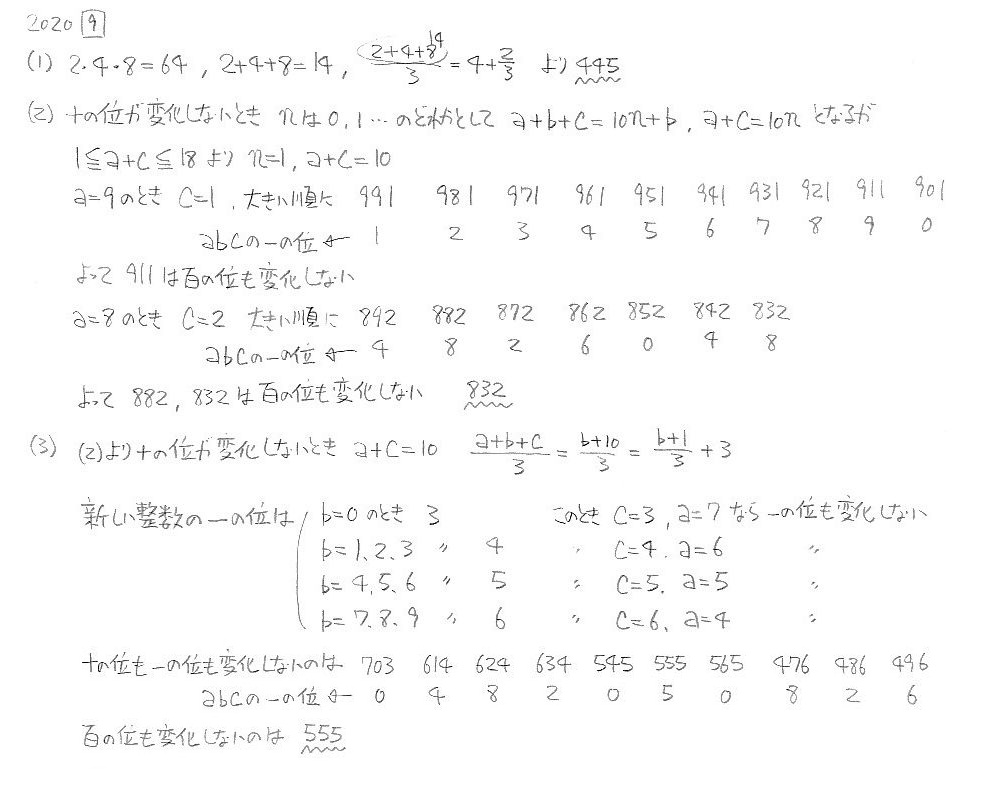 2020 9
(1) 2・4・8=64 , 2+4+8=14 , (2+4+8)/3 14 = 4+2/3 より 445
(2) 十の位が変化しないとき nは0,1…のどれかとして a+b+c=10n+b , a+c=10n となるが
1≦a+c≦18より n=1, a+c=10
a=9のとき c=1 , 大きい順に 991 981 971 961 951 941 931 921 911 901
abcの一の位← 1 2 3 4 5 6 7 8 9 0
よって 911は百の位も変化しない
a=8のとき c=2 大きい順に 892 882 872 862 852 842 832
abcの一の位← 4 8 2 6 0 4 8
よって 882, 832は百の位も変化しない 832
(3) (2)より十の位が変化しないとき a+c=10 (a+b+c)/3 = (b+10)/3 = (b+1)/3 + 3
新しい整数の一の位は b=0のとき 3 このとき c=3, a=7なら一の位も変化しない
b=1,2,3 〃 4 〃 c=4. a=6 〃
b=4,5,6 〃 5 〃 c=5. a=5 〃
b=7.8.9 〃 6 〃 c=6, a=4 〃
十の位も一の位も変化しないのは 703 614 624 634 545 555 565 476 486 496
abcの一の位← 0 4 8 2 0 5 0 8 2 6
百の位も変化しないのは 555